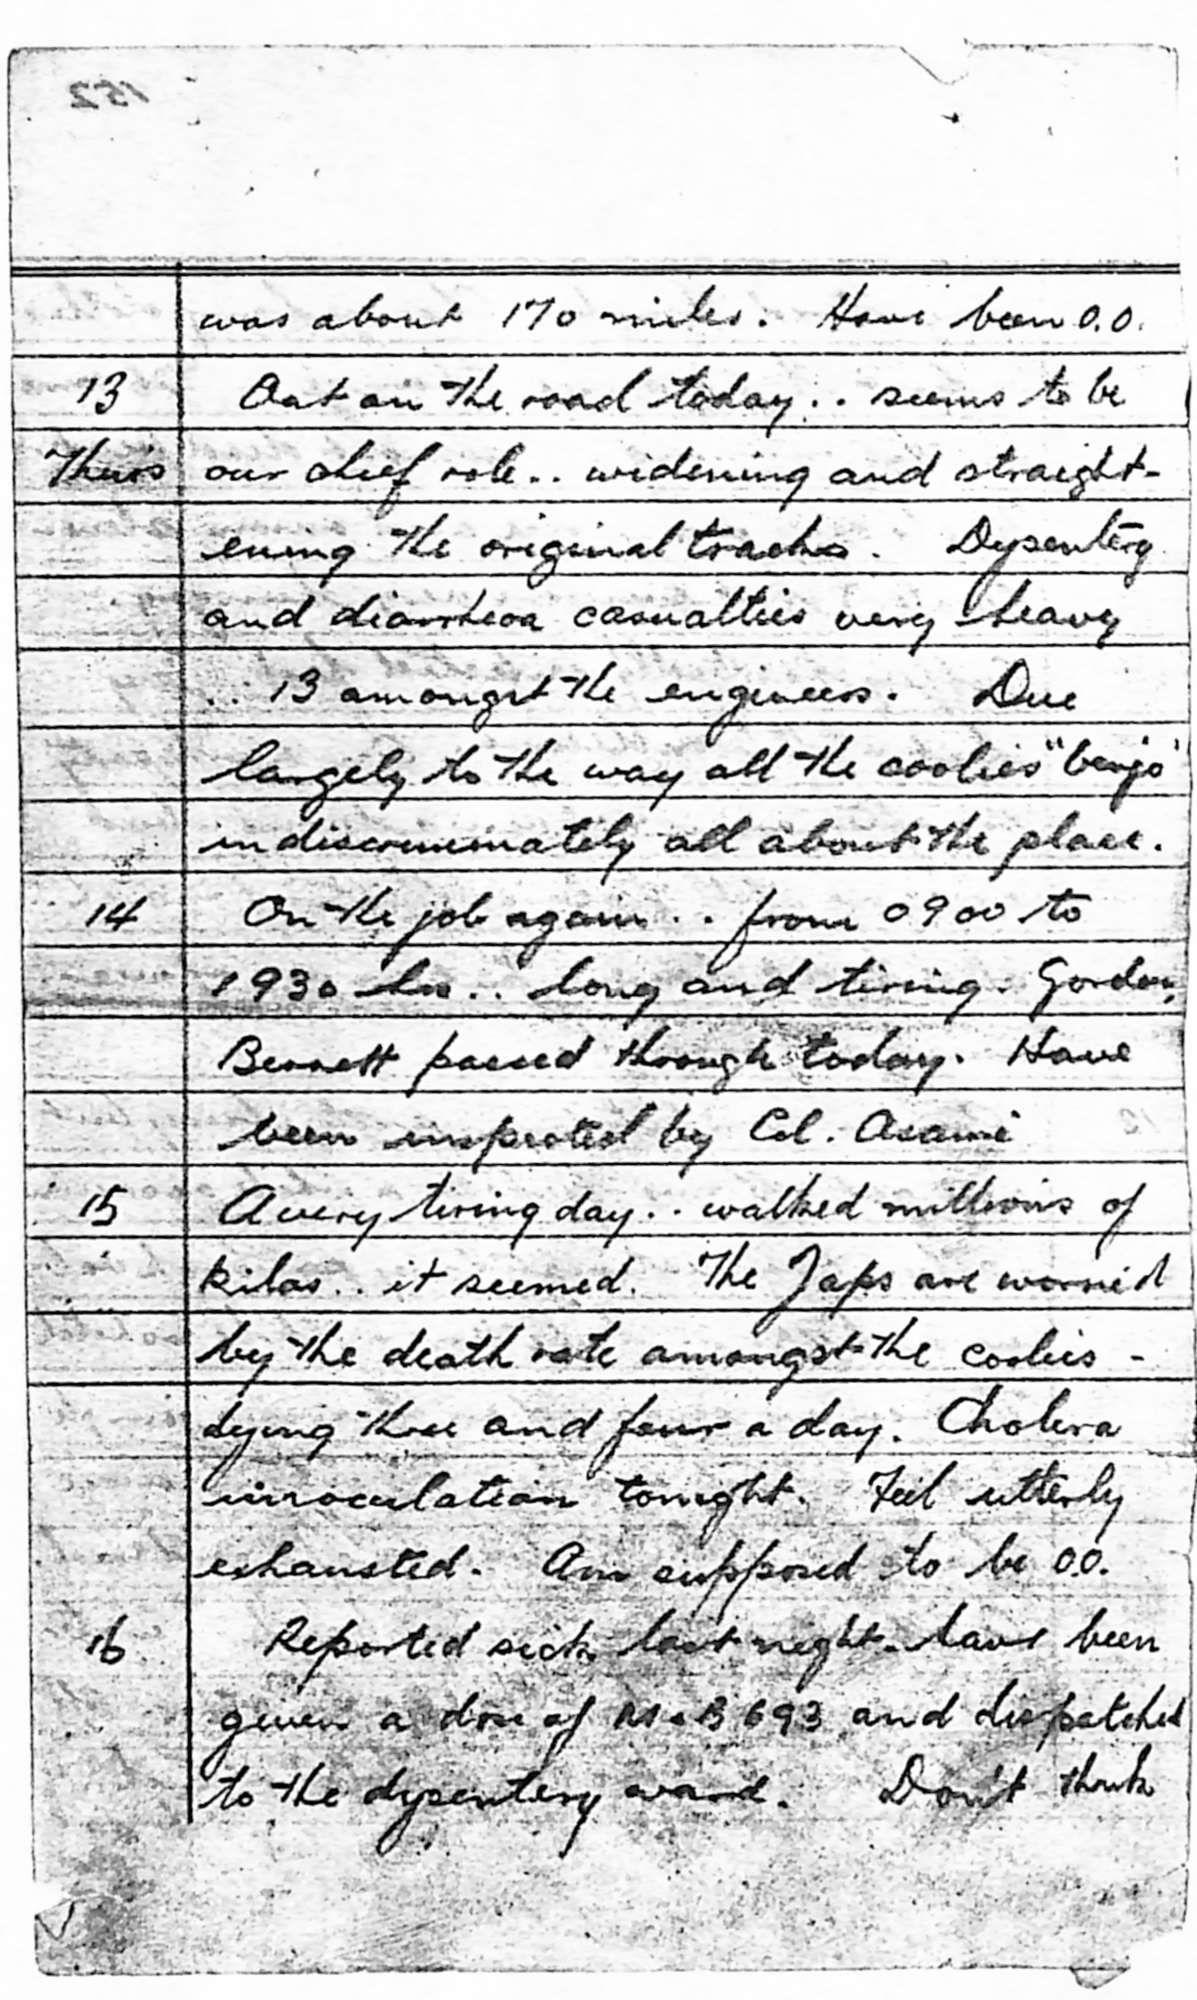 152
was about 170 miles. Have been O.O.
13 Out on the road today.. seems to be
Thurs our chief role.. widening and straight-
ening the original tracks. Dysentery
and diarrhoea casualties very heavy
.. 13 amongst the engineers. Due
largely to the way all the coolies "benjo"
indiscriminately all about the place.
14 On the job again.. from 0900 to
1930 hrs.. long and tiring. Gordon
Bennett passed through today. Have
been inspected by Col. Asami
15 A very tiring day.. walked millions of
kilos.. it seemed. The Japs are worried
by the death rate amongst the coolies -
dying three and four a day. Cholera
innoculation tonight. Feel utterly
exhausted. Am supposed to be O.O.
16 Reported sick last night - have been
given a dose of M & B 693 and dispatched
to the dysentery ward. Don't think